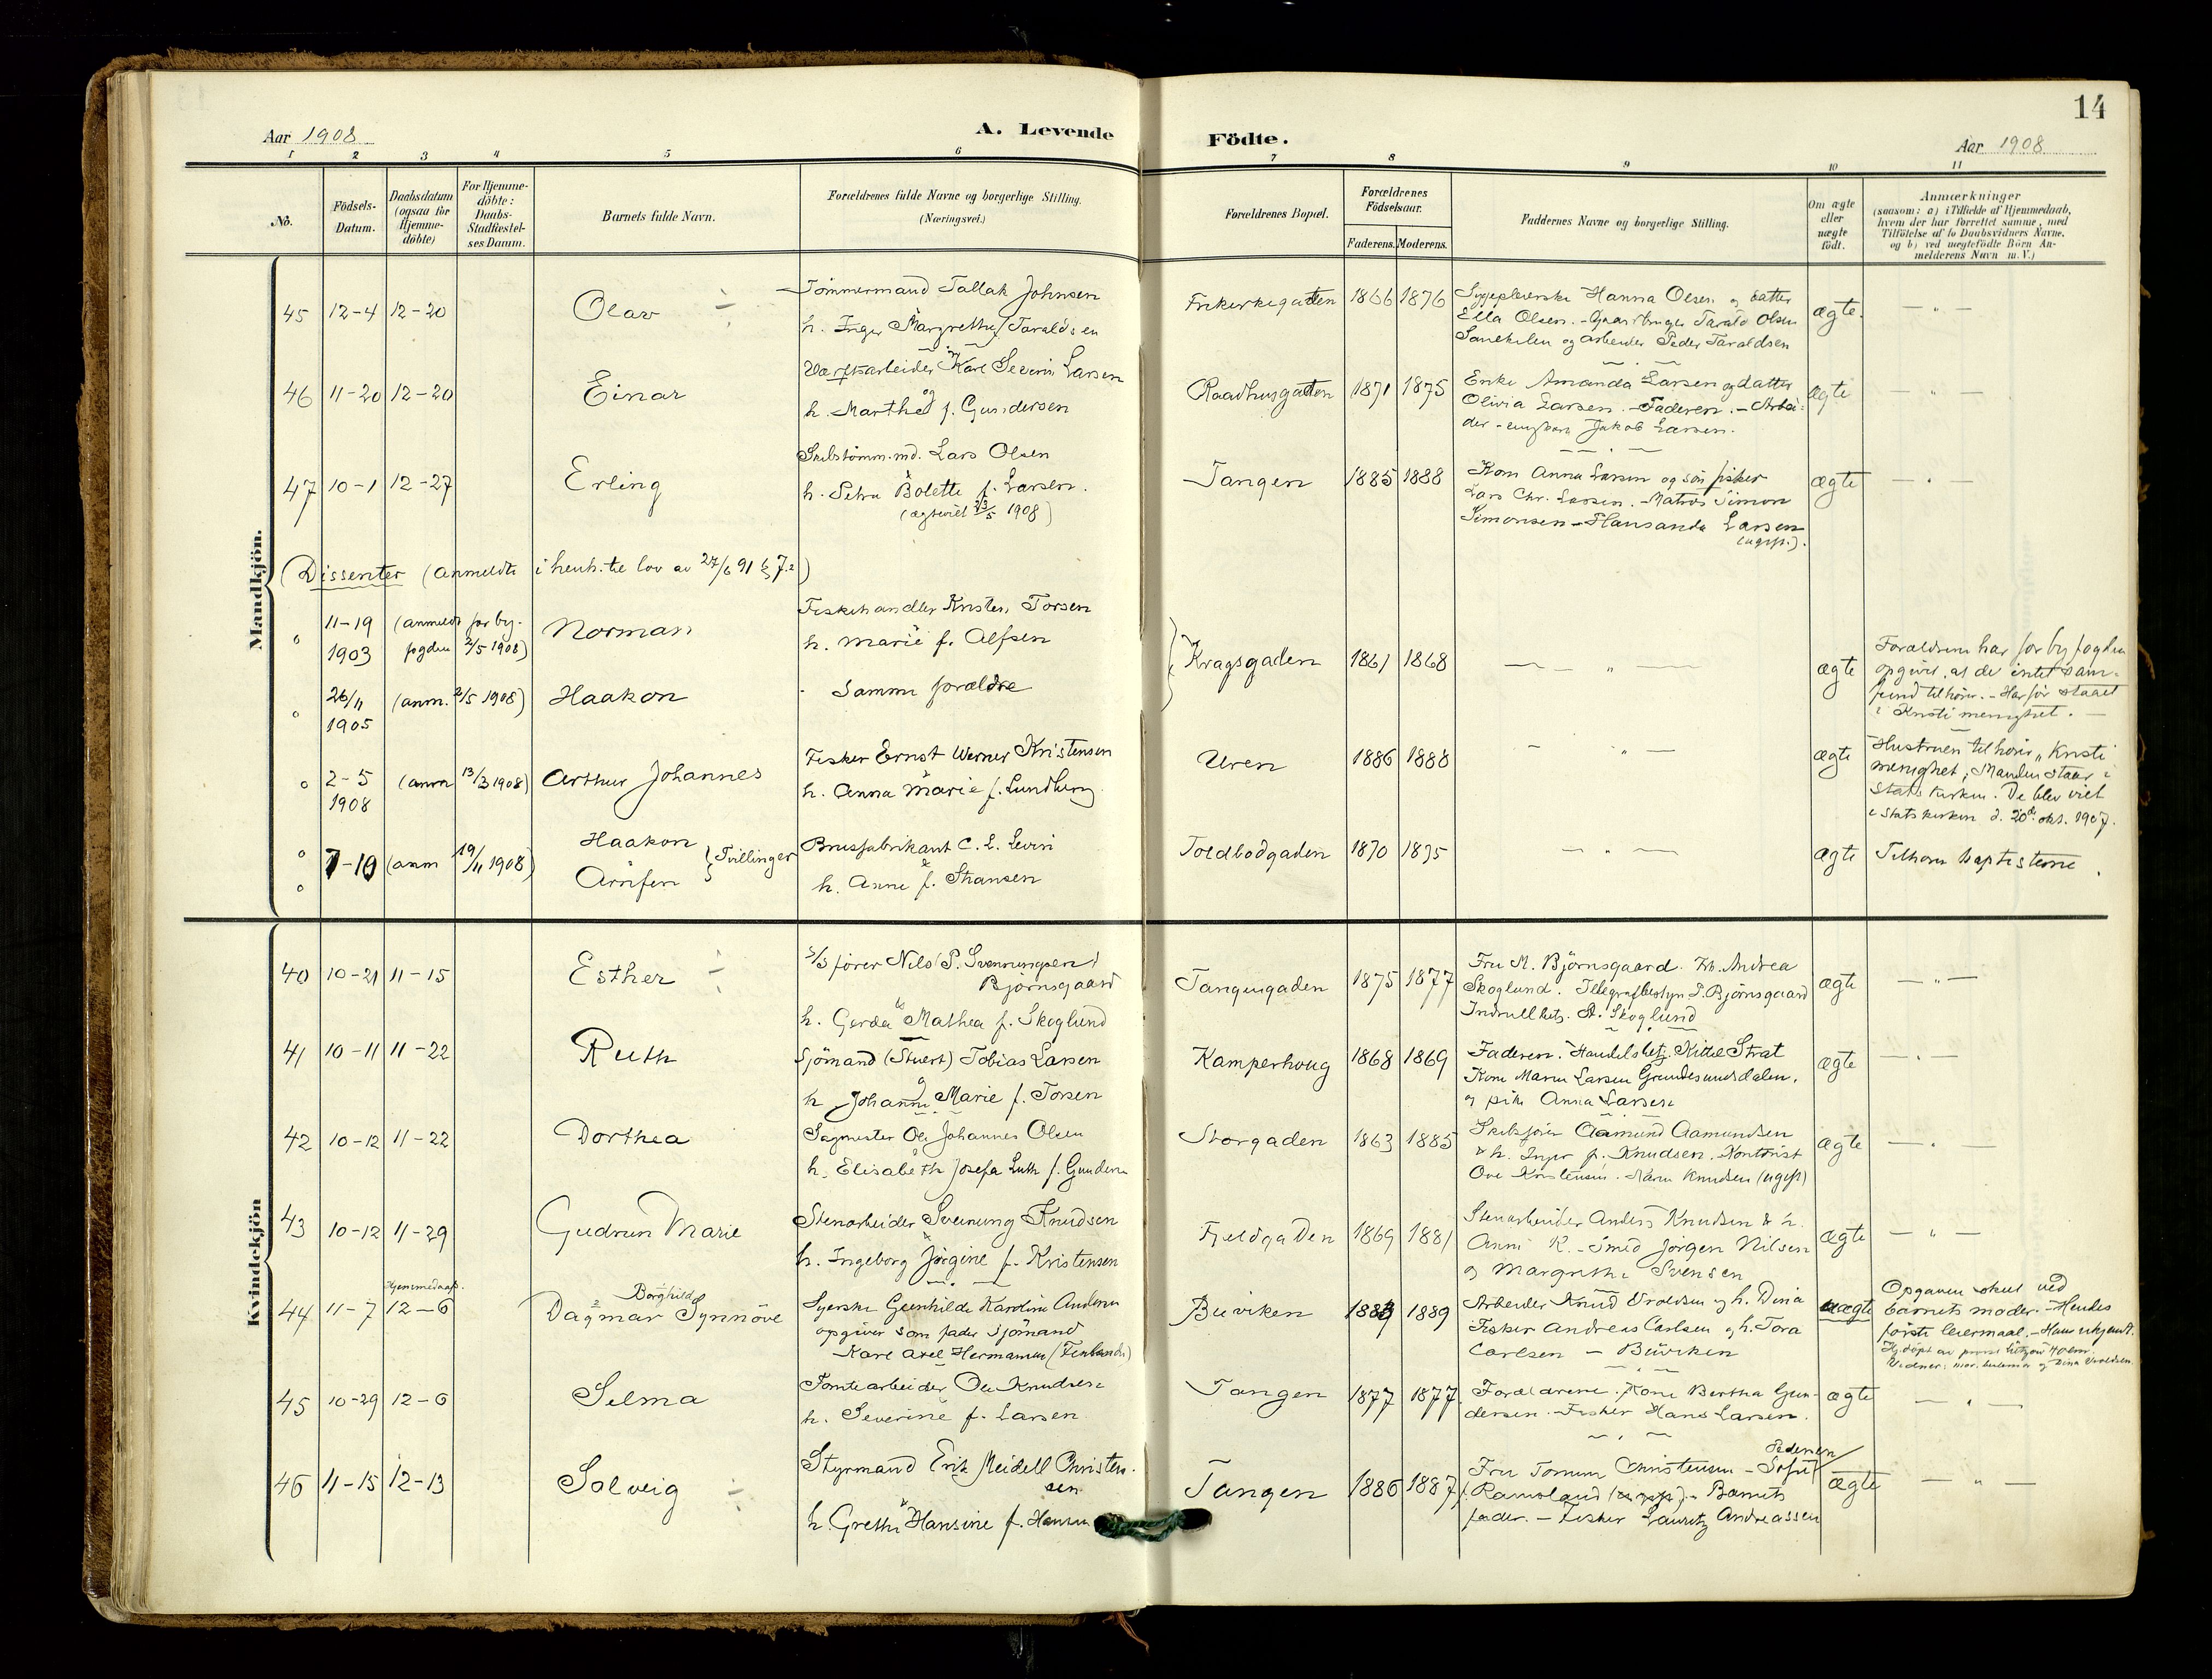 14
Aar 1908
A. Levende
Födte.
Aar 1908
1 2 3 4 5 6 7 8 9 10 11
No.
Födsels-
Datum.
Daabsdatum
(ogsaa for
Hjemme-
döbte)
For Hjemme-
döbte:
Daabs-
Stadfæstel-
ses Datum.
Barnets fulde Navn.
Forældrenes fulde Navne og borgerlige Stilling.
(Næringsvei.)
Forældrenes Bopæl.
Forældrenes
Födselsaar.
Faderens.
Moderens.
Faddernes Navne og borgerlige Stilling.
Om ægte
eller
uægte
födt.
Anmærkninger
(saasom: a) i Tilfælde af Hjemmedaab,
hvem der har forrettet samme, med
Tilföielse af to Daabsvidners Navne,
og b) ved uægtefödte Börn An-
melderens Navn m. V.)
Mandkjön.
45 12-4 12-20 Olav
Tömmermand Tallak Johnsen
h. Inger Margrethe Taraldsen
Frikirkegaten 1866 1876
Sygepleierske Hanna Olsen og datter
Ella Olsen. - Gaardbruger Tarald Olsen
og arbeider Peder Taraldsen
ægte.
46 11-20 12-20 Einar
Værftsarbeider Karl Severin Larsen
og
h. Marthe f. Gundersen
Raadhusgaten 1871 1875
Enke Amanda Larsen og datter
Olivia Larsen. - Faderen. - Arbei-
der - ungkarl Jakob Larsen.
ægte
47 10-1 12-27 Erling
Skibstömm.md. Lars Olsen
h. Petra Bolette f. Larsen.
(ægteviet 23/5 1908)
Tangen 1885 1888
Kone Anna Larsen og sön fisker
Lars Chr. Larsen. - Matros Simon
Simonsen - Hansanda Larsen
(ugift.).
ægte
(Dissenter (anmeldte i henh. til lov av 27/6 91 § 7.2)
" 11-19 1903 (anmeldt for by-
fogden 2/5 1908)
Norman
Fiskehandler Kristen Torsen
h. Marie f. Alfsen
Kragsgaden 1861 1868
ægte
Forældrene har for byfogden
opgivet, at de intet sam-
fund tilhörer. - Har för staaet
i Kristi menighet.
" 26/11 1905 (anm. 2/5 1908) Haakon
Samme forældre
" 2-5 1908 (anm 13/3 1908) Arthur Johannes
Fisker Ernst Werner Kristensen
h. Anna Marie f. Lundberg
Uren 1886 1888
ægte
Hustruen tilhörer "Kristi
menighet; Manden staar i
Statskirken. De blev viet
i Statskirken d. 20de okt. 1907.
" 7-10 (anm 19/11 1908) Haakon
" Arnfen } Tvillinger
Brusfabrikant C. L. Levin
h. Anne f. Hansen
Toldbodgaden 1870 1875
ægte
Tilhörer baptisterne.
Kvindekjön
40 10-21 11-15 Esther
S/S förer Nils P. Svenningsen
Björnsgaard
h. Gerda Mathea f. Skoglund
Tangengaden 1875 1877
Fru M. Björnsgaard. Andrea
Skoglund. Telegrafbestyr P. Björnsgaard
Skoglund
ægte
41 10-11 11-22 Ruth
Sjömand (Stuert) Tobias Larsen
h Johanne Marie f. Torsen
Kamperhoug 1868 1869
Faderen. Handelsbetj. Kittel Strat
Kone Maren Larsen
og pike Anna Larsen
ægte
42 10-12 11-22 Dorthea
Sagmester Ole Johannes Olsen
h. Elisabeth Josefa Luth f. Gundersen
Storgaden 1863 1885
Skibsförer Aamund Aamundsen
& h. Inger f. Knudsen. Kontorist
Ove Kristensen. Karen Knudsen (ugift)
ægte
43 10-12 11-29 Gudrun Marie
Stenarbeider Sveinung Knudsen
h. Ingeborg Jörgine f. Kristensen
Fjeldgaden 1869 1881
Stenarbeider Anders Knudsen & h.
Anne K. - Smed Jörgen Nilsen
og Margrethe Svensen
ægte
44 11-7 Hjemmedaab. 12-6
Borghild
Dagmar Synnöve
Syerske Gunhilde Karoline Andersen
opgiver som fader Sjömand
Karl Axel Hermansen (Finlands)
Buviken 1889 1889
Arbeider Knud Evaldsen og h. Dina
Fisker Andreas Carlsen og h. Tora
Carlsen - Buviken
uægte
Opgaven skeet ved
barnets moder. - Hendes
förste leiermaal.
45 10-29 12-6 Selma
Tomtearbeider Ole Knudsen
h. Severine f. Larsen
Tangen 1877 1877
Forældrene. Kone Bertha Gun-
dersen. - Fisker Hans Larsen.
ægte
46 11-15 12-13 Solveig
Styrmand Erik Meidell Christen-
sen
h. Grethe Hansine f. Hansen
Tangen 1886 1887
Pedersen
Fru Tomine Christensen - Sofie
(ugift). - Barnets
fader. - Fisker Lauritz Andreassen
ægte